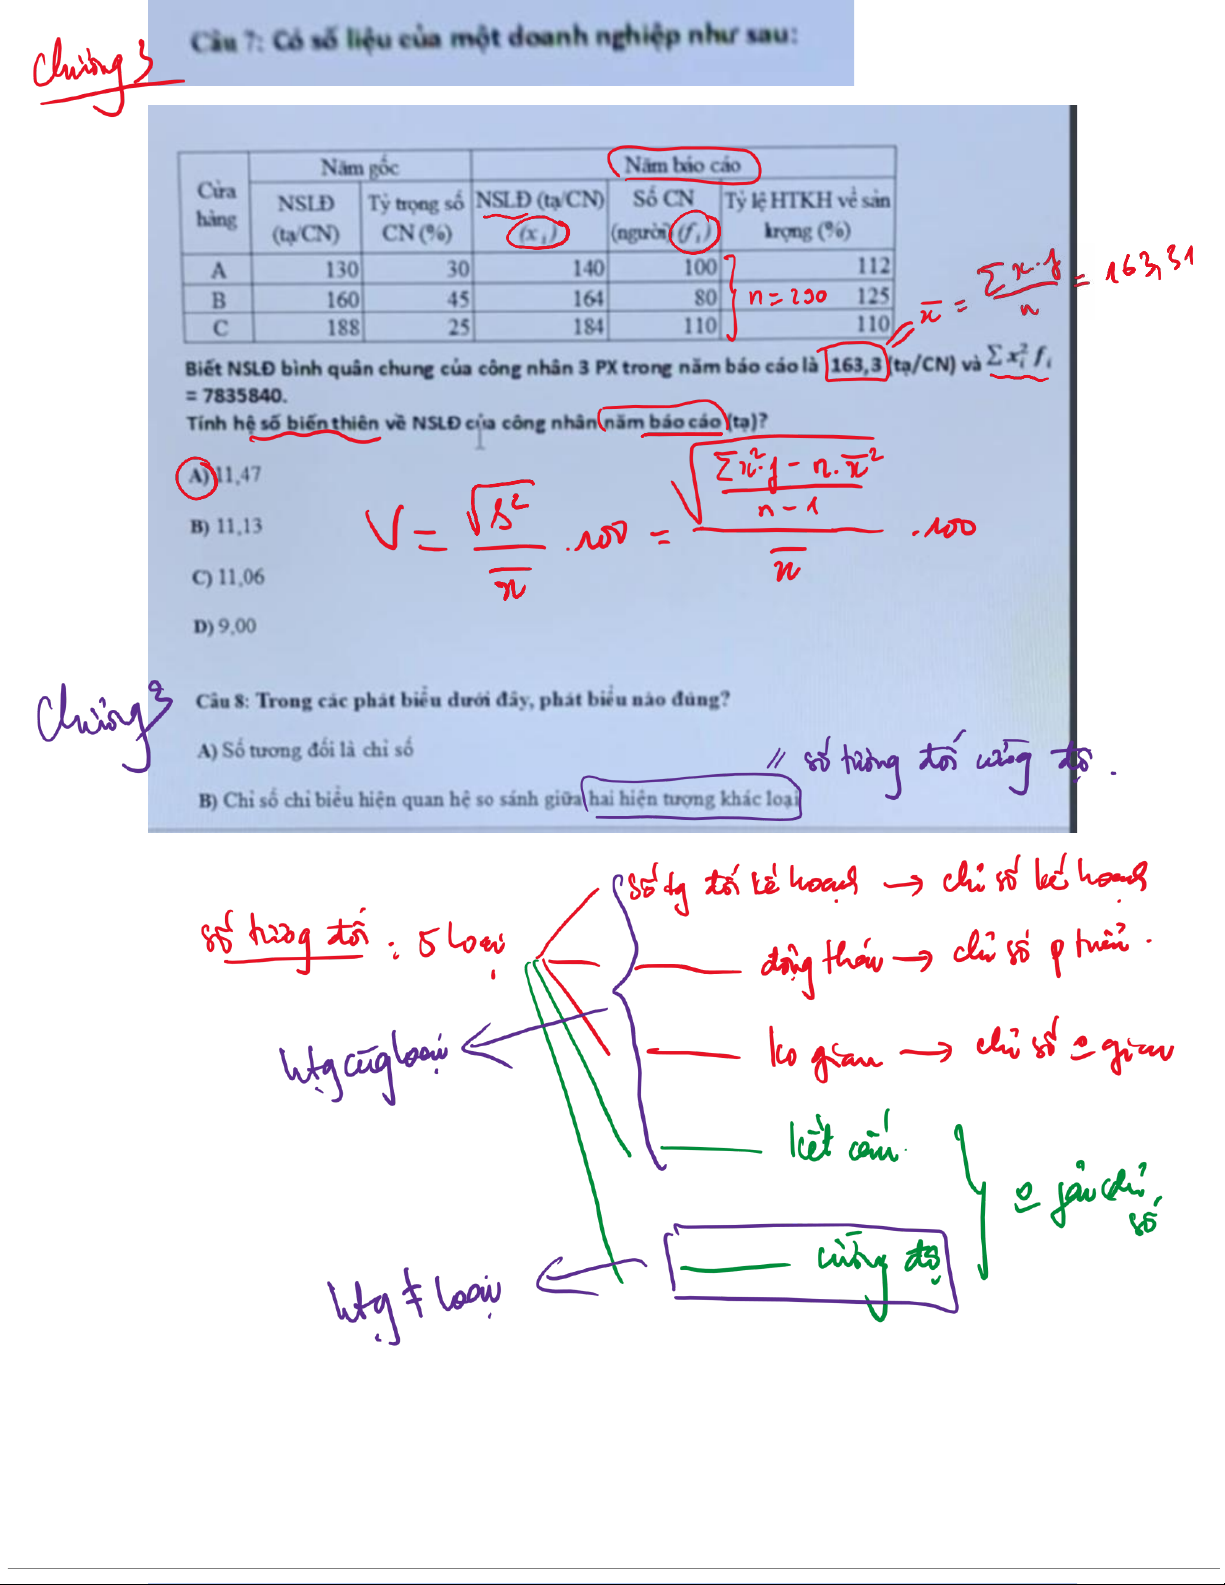 Chương 3
Câu 7: Có số liệu của một doanh nghiệp như sau:
Cửa hàng
Năm gốc
Năm báo cáo
NSLĐ (tạ/CN)
Tỷ trọng số CN (%)
NSLĐ (tạ/CN) (xᵢ)
Số CN (người) (fᵢ)
Tỷ lệ HTKH về sản lượng (%)
A 130 30 140 100 112
B 160 45 164 80 125
C 188 25 184 110 110
n = 290
x̄ = Σx.f / n = 163,31
Biết NSLĐ bình quân chung của công nhân 3 PX trong năm báo cáo là 163,3 (tạ/CN) và Σxᵢ²fᵢ
= 7835840.
Tính hệ số biến thiên về NSLĐ của công nhân năm báo cáo (tạ)?
A) 11,47
B) 11,13
C) 11,06
D) 9,00
V = √s² / x̄ . 100 = √((Σx².f - n.x̄²) / (n - 1)) / x̄ . 100
Chương 3
Câu 8: Trong các phát biểu dưới đây, phát biểu nào đúng?
A) Số tương đối là chỉ số
// số tương đối cường độ.
B) Chỉ số chỉ biểu hiện quan hệ so sánh giữa hai hiện tượng khác loại
số tương đối : 5 loại
số tg đối kế hoạch → chỉ số kế hoạch
động thái → chỉ số p triển.
ko gian → chỉ số o gian
htg cùg loại
kết cấu
cường độ
o fải chỉ số
htg ≠ loại